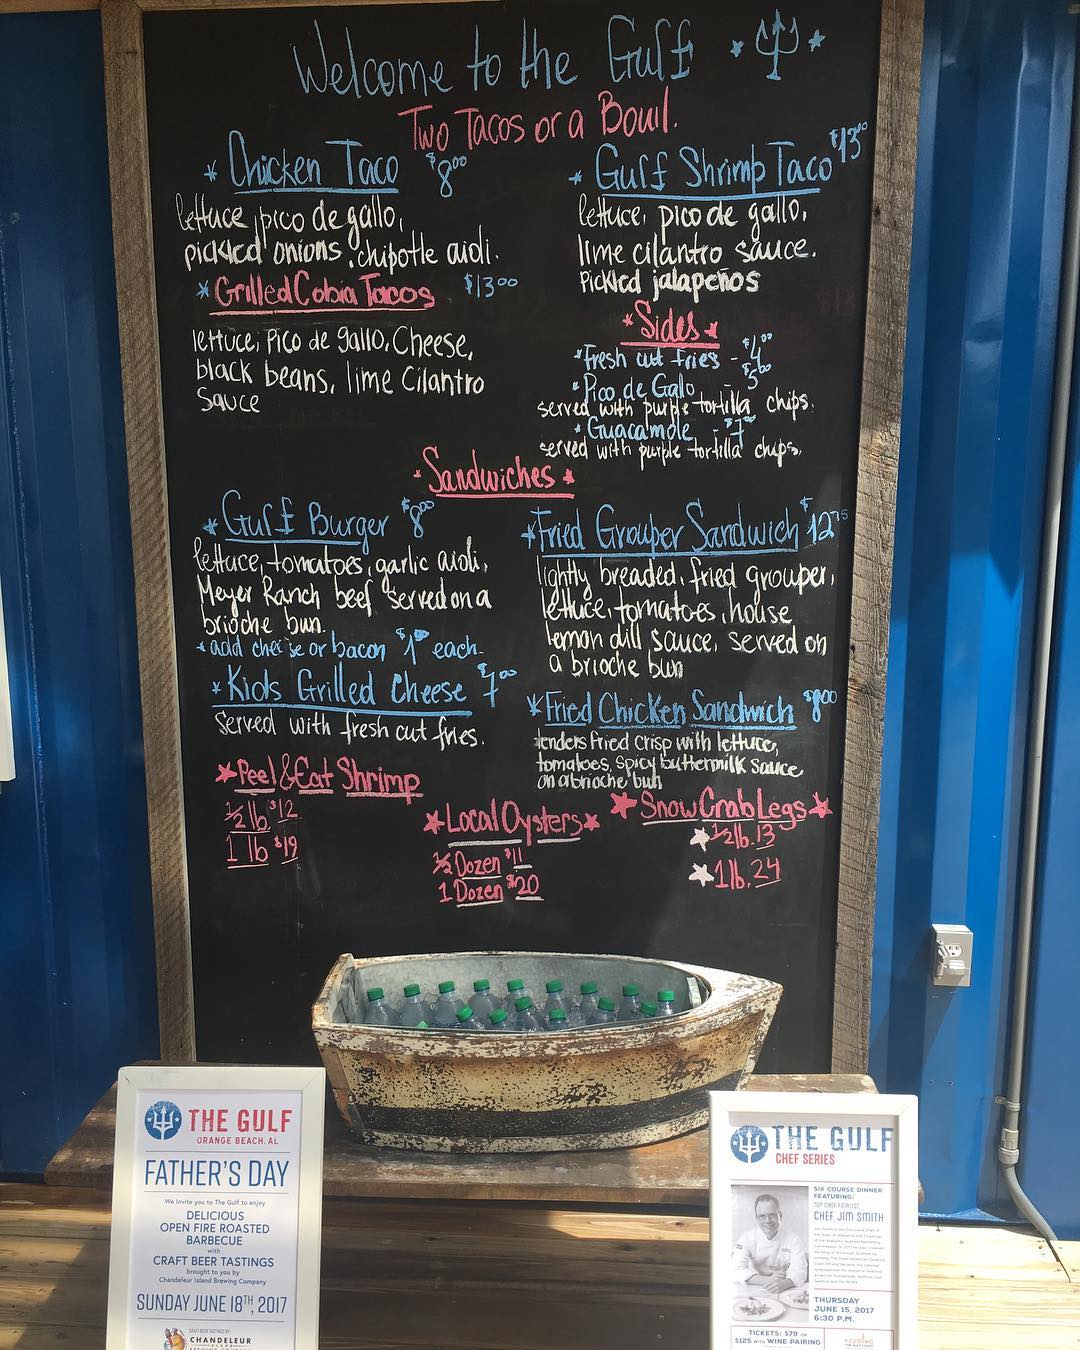 Welcome to the Gulf
Two Tacos or a Bowl.
* Chicken Taco $8.00
lettuce, pico de gallo,
pickled onions, chipotle aioli.
* Grilled Cobia Tacos $13.00
lettuce, Pico de gallo, Cheese,
black beans, lime Cilantro
Sauce
* Gulf Shrimp Taco $13.00
lettuce, pico de gallo,
lime cilantro sauce.
Pickled jalapeños
* Sides *
* Fresh cut fries - $4.00
* Pico de Galo - $5.00
served with purple tortilla chips.
* Guacamole - $7
served with purple tortilla chips.
* Sandwiches *
* Gulf Burger $8.00
lettuce, tomatoes, garlic aioli,
Meyer Ranch beef served on a
brioche bun.
* add cheese or bacon $1.00 each.
* Kids Grilled Cheese $7.00
Served with fresh cut fries.
* Fried Grouper Sandwich $12.75
lightly breaded, fried grouper,
lettuce, tomatoes, house
lemon dill sauce, served on
a brioche bun
* Fried Chicken Sandwich $8.00
tenders fried crisp with lettuce,
tomatoes, spicy buttermilk sauce
on a brioche bun
* Peel & Eat Shrimp
1/2 lb $12
1 lb $19
* Local Oysters *
1/2 Dozen $11
1 Dozen $20
* Snow Crab Legs *
* 1/2 lb. 13
* 1 lb. 24
THE GULF
ORANGE BEACH, AL
FATHER'S DAY
We invite you to The Gulf to enjoy
DELICIOUS
OPEN FIRE ROASTED
BARBECUE
with
CRAFT BEER TASTINGS
brought to you by
Chandeleur Island Brewing Company
SUNDAY JUNE 18TH, 2017
CRAFT BEER TASTINGS BY
CHANDELEUR
THE GULF
CHEF SERIES
SIX COURSE DINNER
FEATURING:
TOP CHEF FINALIST
CHEF JIM SMITH
THURSDAY
JUNE 15, 2017
6:30 P.M.
TICKETS: $79 or
$125 with WINE PAIRING
FEEDING